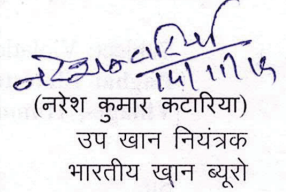 नरेश कटारिया
(नरेश कुमार कटारिया)
उप खान नियंत्रक
भारतीय खान ब्यूरो